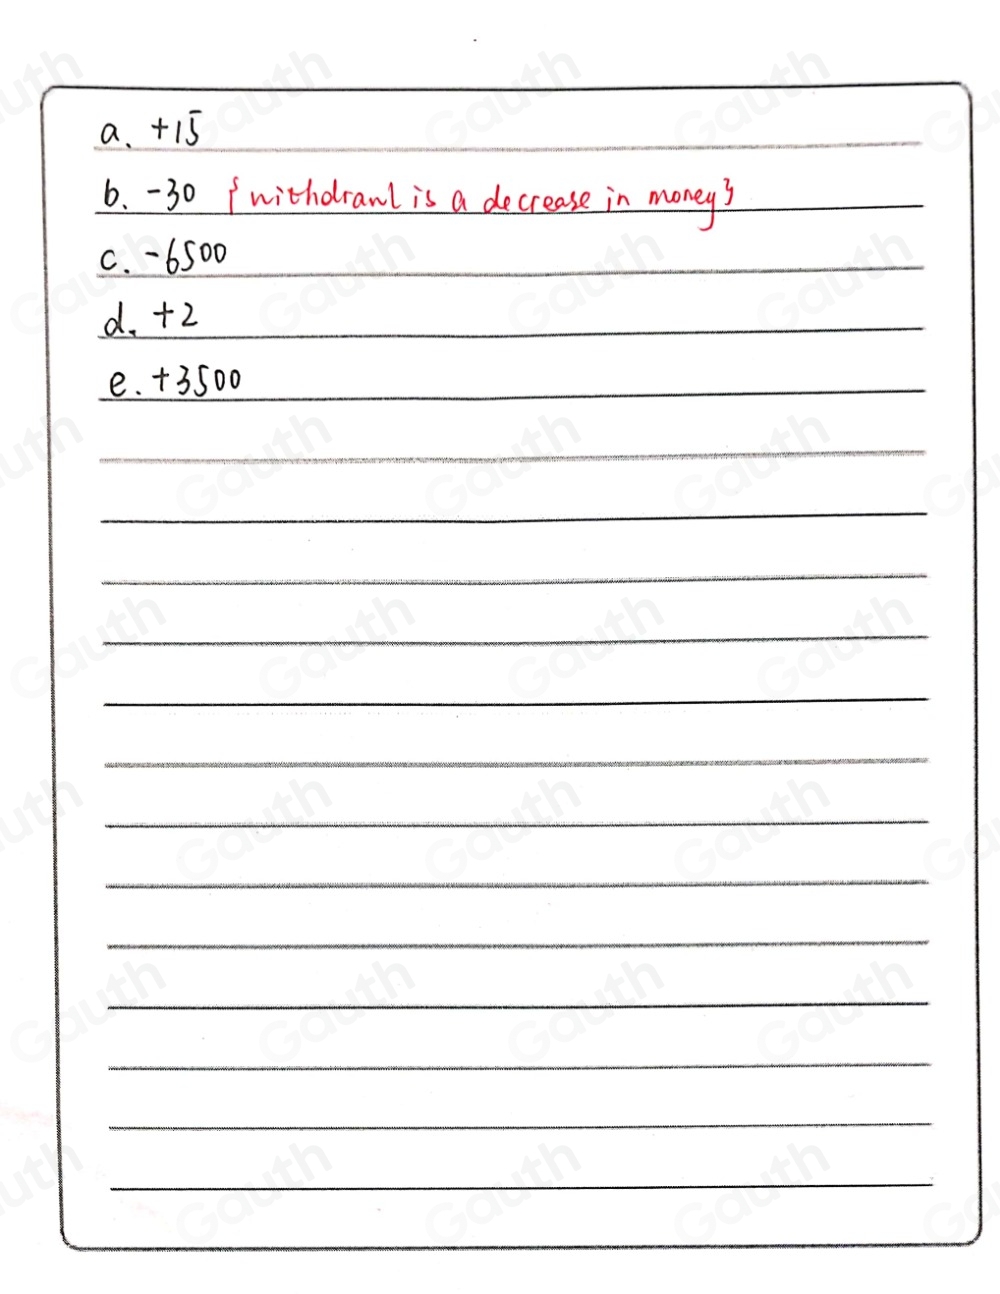 a. +15
b. -30 {withdrawl is a decrease in money}
c. -6500
d. +2
e. +3500